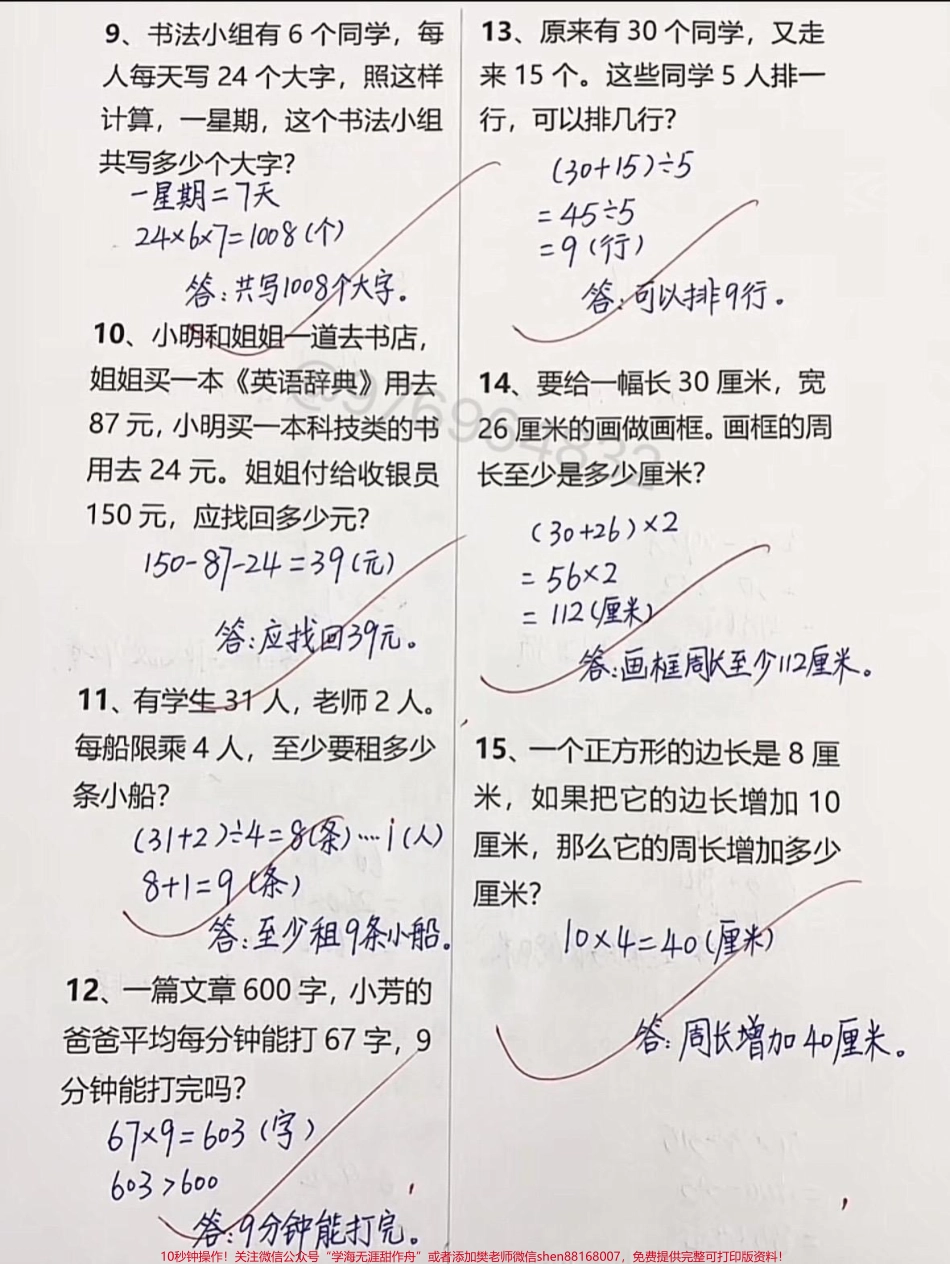 9、书法小组有 6 个同学，每
人每天写 24 个大字，照这样
计算，一星期，这个书法小组
共写多少个大字？
一星期=7天
24×6×7=1008(个)
答:共写1008个大字。
10、小明和姐姐一道去书店，
姐姐买一本《英语辞典》用去
87 元，小明买一本科技类的书
用去 24 元。姐姐付给收银员
150 元，应找回多少元？
150-87-24=39(元)
答:应找回39元。
11、有学生 31 人，老师 2 人。
每船限乘 4 人，至少要租多少
条小船？
(31+2)÷4=8(条)····1(人)
8+1=9(条)
答:至少租9条小船。
12、一篇文章 600 字，小芳的
爸爸平均每分钟能打 67 字，9
分钟能打完吗？
67×9=603(字)
603>600
答:9分钟能打完。
13、原来有 30 个同学，又走
来 15 个。这些同学 5 人排一
行，可以排几行？
(30+15)÷5
=45÷5
=9(行)
答:可以排9行。
14、要给一幅长 30 厘米，宽
26 厘米的画做画框。画框的周
长至少是多少厘米？
(30+26)×2
=56×2
=112(厘米)
答:画框周长至少112厘米。
15、一个正方形的边长是 8 厘
米，如果把它的边长增加 10
厘米，那么它的周长增加多少
厘米？
10×4=40(厘米)
答:周长增加40厘米。
@976964832
10秒钟操作！关注微信公众号“学海无涯甜作舟”或者添加樊老师微信shen88168007，免费提供完整可打印版资料！